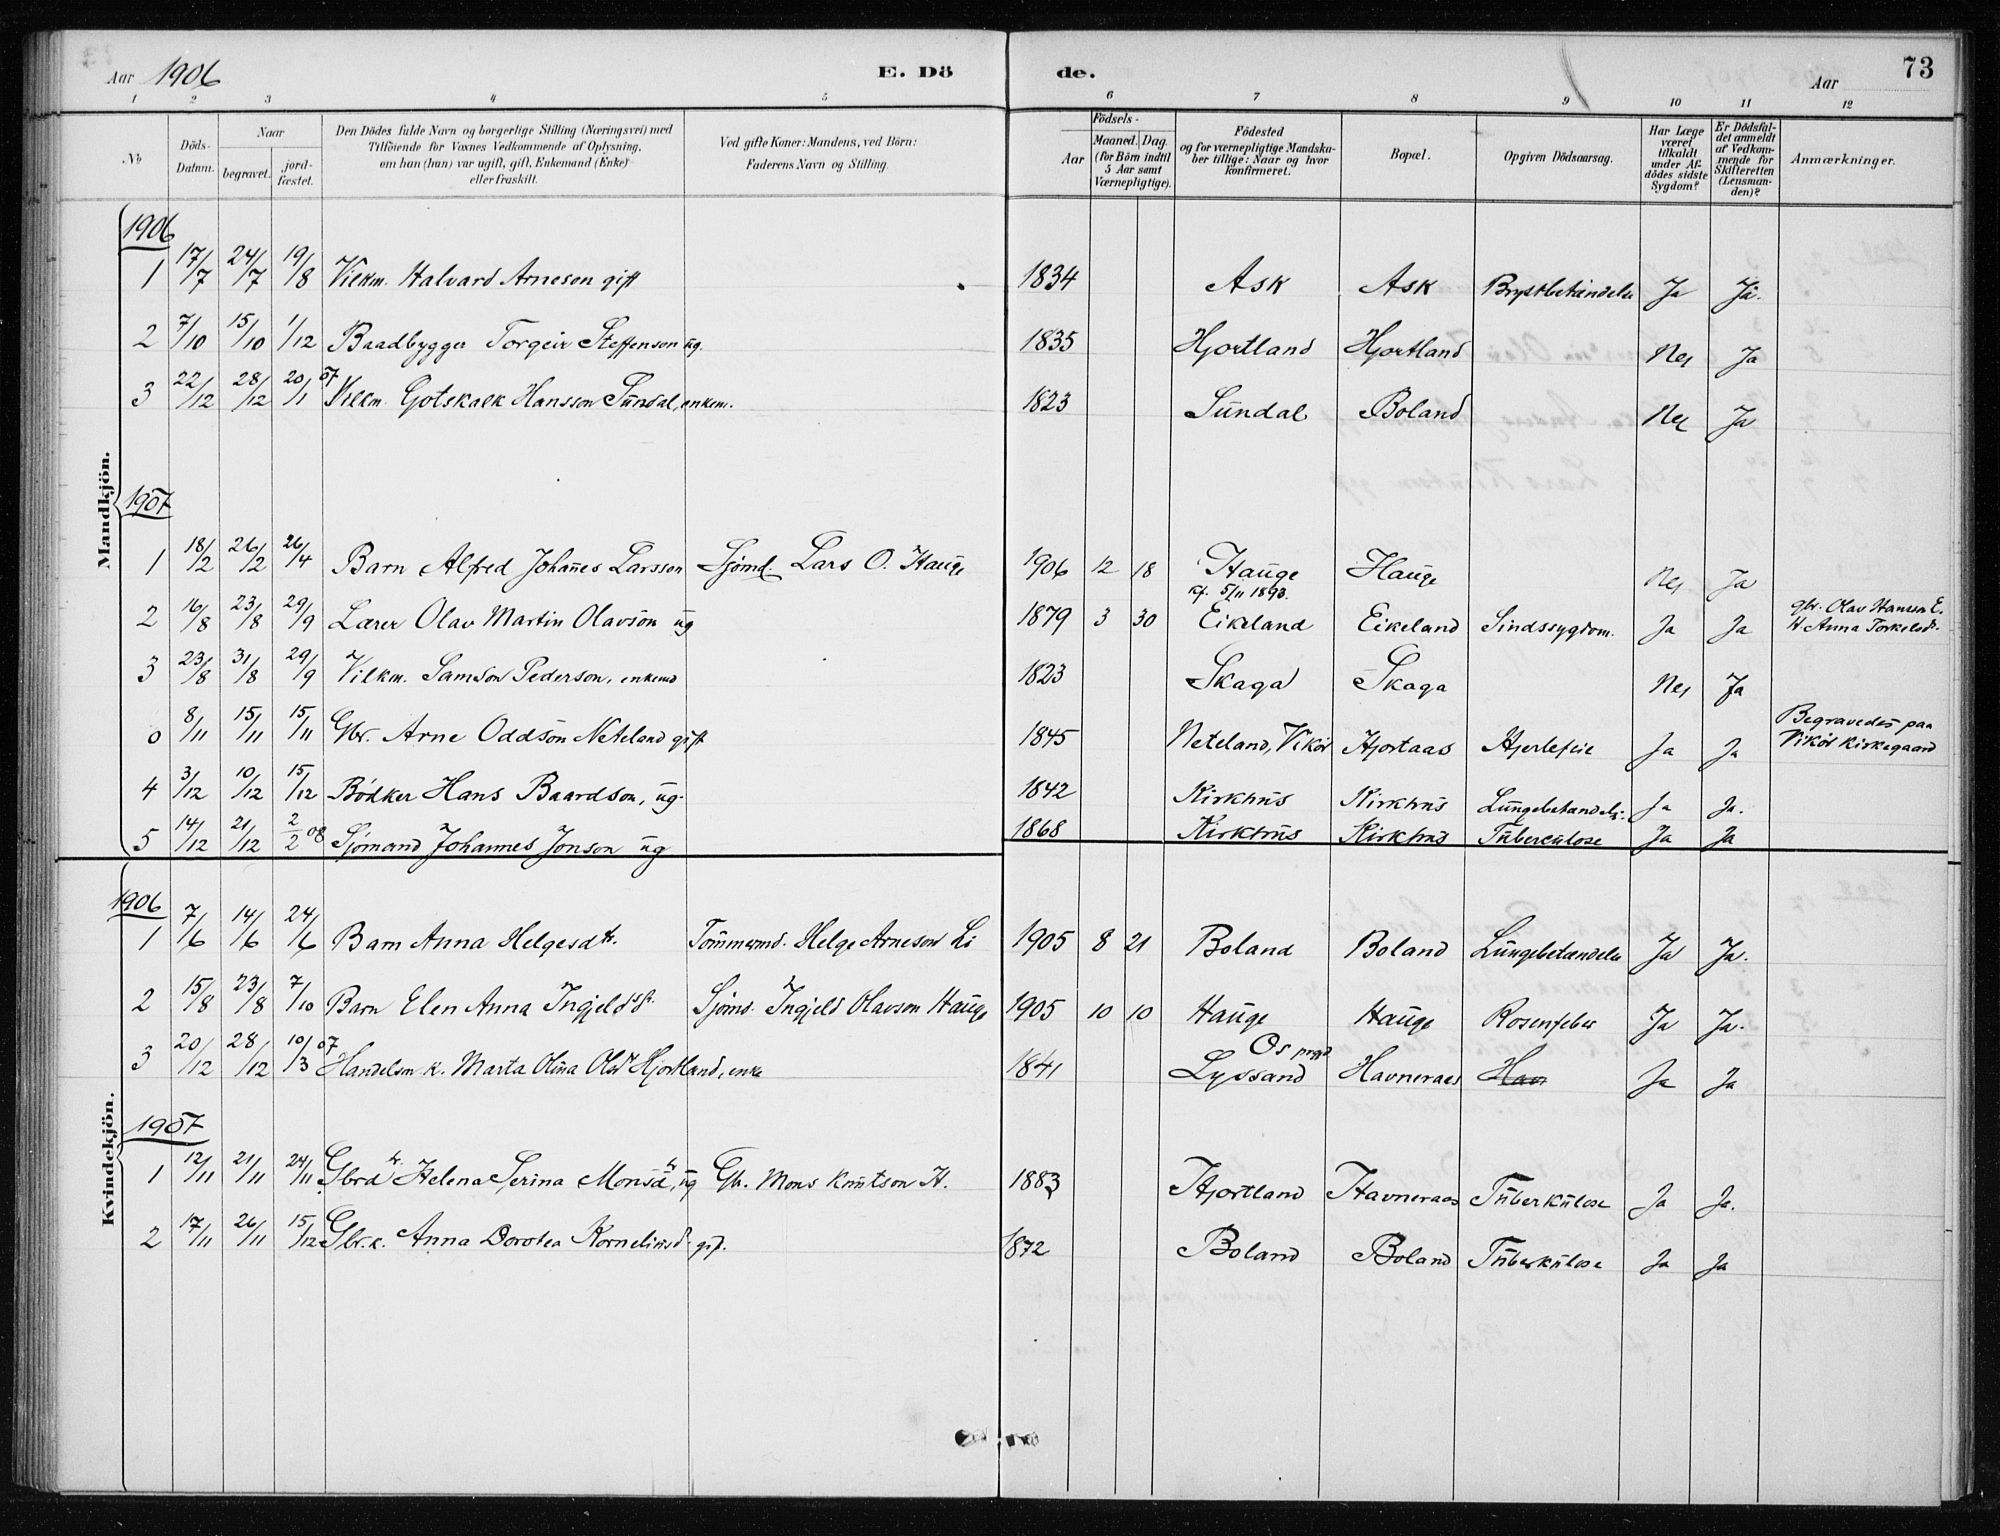 Aar 1906 E. Döde. Aar 73
1 2 3 4 5 6 7 8 9 10 11 12
No Döds-Datum. Naar begravet. jordfæstet. Den Dödes fulde Navn og borgerlige Stilling (Næringsvei) med Tilföiende for Voxnes Vedkommende af Oplysning, om han (hun) var ugift, gift, Enkemand (Enke) eller fraskilt. Ved gifte Koner: Mandens, ved Börn: Faderens Navn og Stilling. Födsels- Aar Maaned. Dag. (for Börn indtil 5 Aar samt Værnepligtige). Födested og for værnepligtige Mandskaber tillige: Naar og hvor konfirmeret. Bopæl. Opgiven Dödsaarsag. Har Læge været tilkaldt under Afdödes sidste Sygdom? Er Dödsfaldet anmeldt af Vedkommende for Skifteretten (Lensmanden)? Anmærkninger.
Mandkjön.
1906
1 17/7 24/7 19/8 Vilkm. Halvard Arneson gift 1834 Ask Ask Brystbetændelse Ja Ja.
2 7/10 15/10 1/12 Baadbygger Torgeir Steffenson ug. 1835 Hjortland Hjortland Nei Ja
3 22/12 28/12 20/1 07 Vilkm. Gotskalk Hansson Sundal, enkem. 1823 Sundal Boland Nei Ja
1907
1 18/2 26/2 26/4 Barn Alfred Johanes Larsson Sjömd. Lars O. Hauge 1906 12 18 Hauge Hauge Nei Ja
kf. 5/11 1893.
2 16/8 23/8 29/9 Lærer Olav Martin Olavson ug 1879 3 30 Eikeland Eikeland Sindssygdom. Ja Ja gbr. Olav Hansson E. H Anna Torkelsdr.
3 23/8 31/8 29/9 Vilkm. Samson Pederson, enkemd 1823 Skaga Skaga Nei Ja
0 8/11 15/11 15/11 Gbr. Arne Oddson Neteland gift 1845 Neteland, Vikör Hjortaas Hjertefeie Ja Ja Begravedes paa Vikör Kirkegaard
4 3/12 10/12 15/12 Bödker Hans Baardson, ug. 1842 Kirkhus Kirkhus Lungebetændelse. Ja Ja.
5 14/12 21/12 2/2 08 Sjömand Johannes Jonson ug 1868 Kirkhus Kirkhus Tuberculose Ja Ja
Kvindekjön.
1906
1 7/6 14/6 24/6 Barn Anna Helgesdtr. Tömmermd. Helge Arneson Li 1905 8 21 Boland Boland Lungebetændelse Ja Ja.
2 15/8 23/8 7/10 Barn Elen Anna Ingjeldsdt. Sjömd. Ingjeld Olavson Hauge 1905 10 10 Hauge Hauge Rosenfeber Ja Ja.
3 20/12 28/12 10/3 07 Handelsm. k. Marta Olina Olsd Hjortland, enke 1841 Lyssand Os prgd Havneraas Hav Ja Ja
1907
1 12/11 21/11 24/11 Gbrdtr. Helena Serina Monsdtr, ug Gbr. Mons Knutson H. 1883 Hjortland Havneraas Tuberkulose Ja Ja.
2 17/11 26/11 15/12 Gbr. k. Anna Dorotea Korneliusd gift. 1872 Boland Boland Tuberkulose Ja Ja